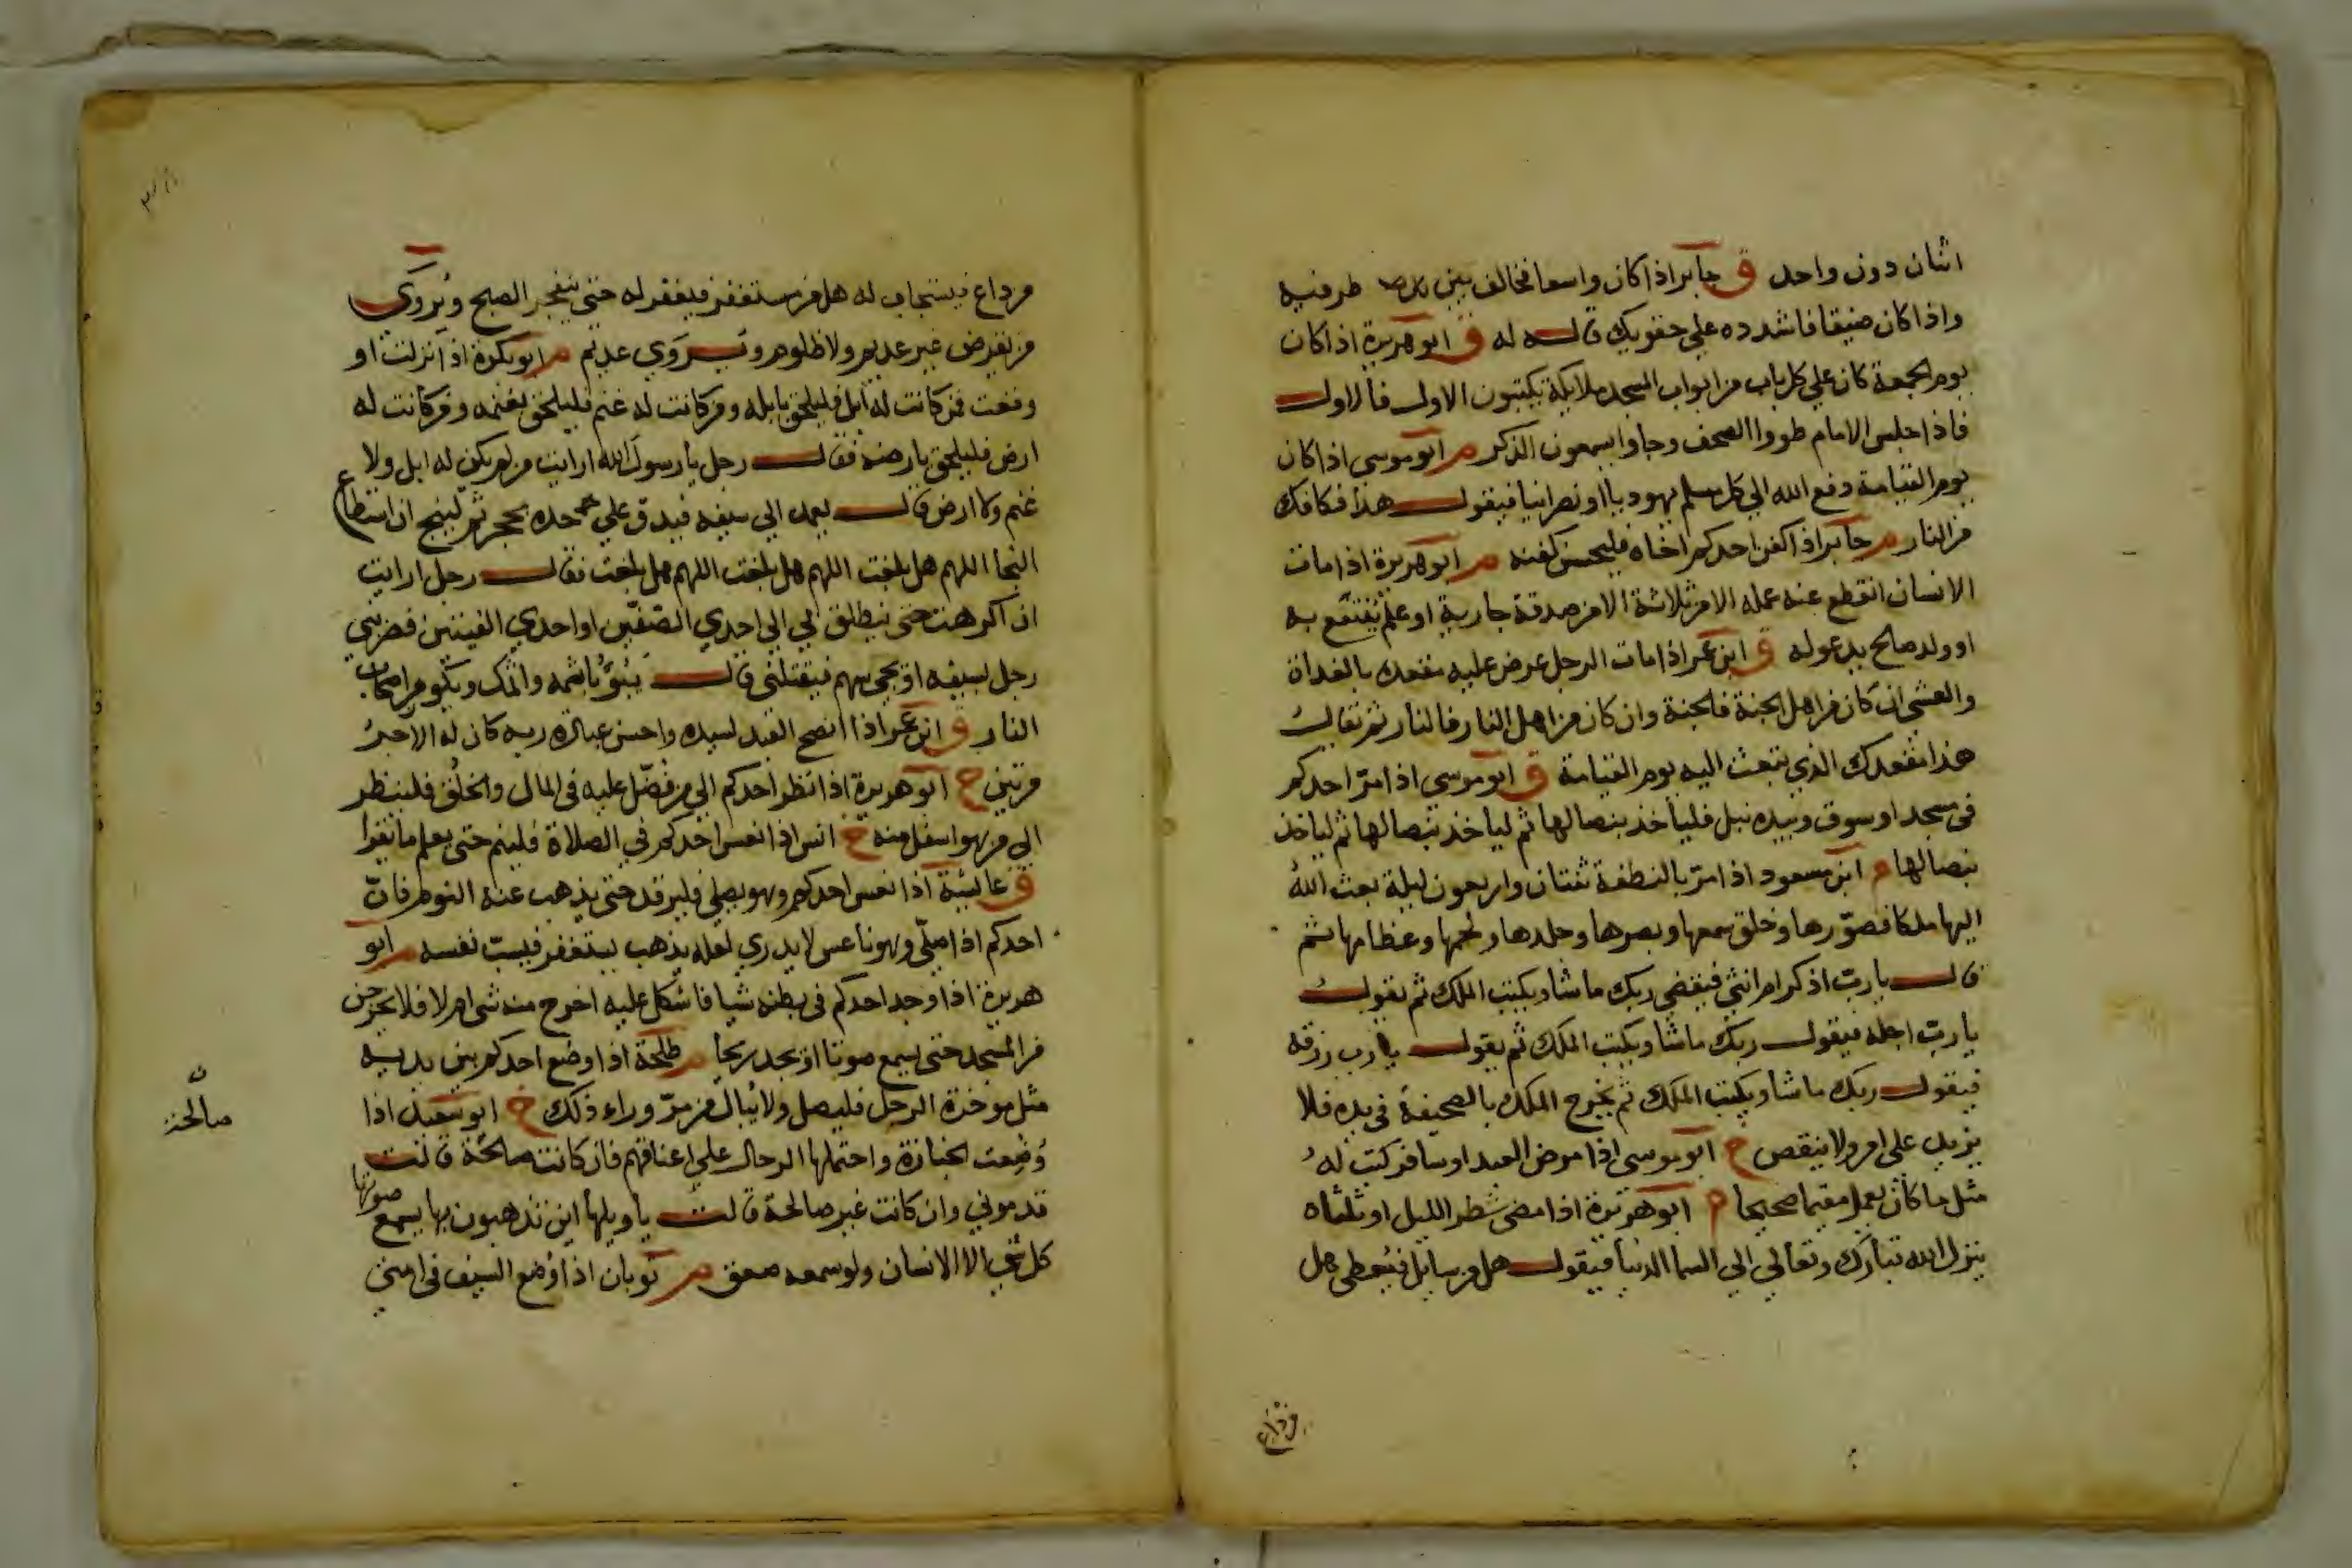 اثنان دون واحد ق جابر اذا كان واسعا فخالف بين طرفيه
واذا كان ضيقا فاشدده علي حقويك قاله له ق ابو هريرة اذا كان
يوم الجمعة كان علي كل باب من ابواب المسجد ملايكة يكتبون الاول فالاول
فاذا جلس الامام طووا الصحف وجاوا يسمعون الذكر م ابو موسي اذا كان
يوم القيامة دفع الله الي كل مسلم يهوديا او نصرانيا فيقول هذا فكاكك
من النار م جابر اذا كفن احدكم اخاه فليحسن كفنه م ابو هريرة اذا مات
الانسان انقطع عنه عمله الا من ثلاثة الا من صدقة جارية او علم ينتفع به
او ولد صالح يدعو له ق ابن عمر اذا مات الرجل عرض عليه مقعده بالغداة
والعشي ان كان من اهل الجنة فالجنة وان كان من اهل النار فالنار ثم يقال
هذا مقعدك الذي تبعث اليه يوم القيامة ق ابو موسي اذا مرّ احدكم
في مسجد او سوق وبيده نبل فلياخذ بنصالها ثم لياخذ بنصالها ثم لياخذ
بنصالها م ابن مسعود اذا مرّ بالنطفة ثنتان واربعون ليلة بعث الله
اليها ملكا فصوّرها وخلق سمعها وبصرها وجلدها ولحمها وعظامها ثم
قال يا ربّ اذكر ام انثي فيقضي ربك ما شا ويكتب الملك ثم يقول
يا ربّ اجله فيقول ربك ما شا ويكتب الملك ثم يقول يا رب رزقه
فيقول ربك ما شا ويكتب الملك ثم يخرج الملك بالصحيفة في يده فلا
يزيد علي امر ولا ينقص خ ابو موسي اذا مرض العبد او سافر كتب له
مثل ما كان يعمل مقيما صحيحا م ابو هريرة اذا مضي شطر الليل او ثلثاه
ينزل الله تبارك وتعالي الي السما الدنيا فيقول هل من سايل فيعطي هل
من داع
من داع فيستجاب له هل من مستغفر فيغفر له حتي ينفجر الصبح ويُروَي
من يقرض غير عديم ولا ظلوم ويروي عدم م ابو بكرة اذا نزلت او
وقعت فمن كانت له ابل فليلحق بابله ومن كانت له غنم فليلحق بغنمه ومن كانت له
ارض فليلحق بارضه فقال رجل يا رسول الله ارايت من لم يكن له ابل ولا
غنم ولا ارض قال يعمد الي سيفه فيدق علي حده بحجر ثم لينج ان استطاع
النجا اللهم هل بلغت اللهم هل بلغت اللهم هل بلغت فقال رجل ارايت
ان اكرهت حتي ينطلق بي الي احدي الصفّين او احدي الفيتين فضربني
رجل بسيفه او يجي سهم فيقتلني قال يبوُء باثمه واثمك ويكون من اصحاب
النار ق ابن عمر اذا نصح العبد لسيده واحسن عبادة ربه كان له الاجر
مرتين خ ابو هريرة اذا نظر احدكم الي من فُضّل عليه في المال والخلق فلينظر
الي من هو اسفل منه خ انس اذا نعس احدكم في الصلاة فلينم حتي يعلم ما يقرا
ق عايشة اذا نعس احدكم وهو يصلي فليرقد حتي يذهب عنه النوم فانّ
احدكم اذا صلّي وهو ناعس لا يدري لعله يذهب يستغفر فيسبّ نفسه م ابو
هريرة اذا وجد احدكم في بطنه شيا فاشكل عليه اخرج منه شي ام لا فلا يخرجن
من المسجد حتي يسمع صوتا او يجد ريحا م طلحة اذا وضع احدكم بين يديه
مثل موخرة الرحل فليصل ولا يبال من مرّ وراء ذلك خ ابو سعيد اذا
وُضعت الجنازة واحتملها الرجال علي اعناقهم فان كانت صالحة قالت
ن صالحة
قدموني وان كانت غير صالحة قالت يا ويلها اين تذهبون بها يسمع صوتها
كل شي الا الانسان ولو سمعه صعق م ثوبان اذا وُضع السيف في امتي